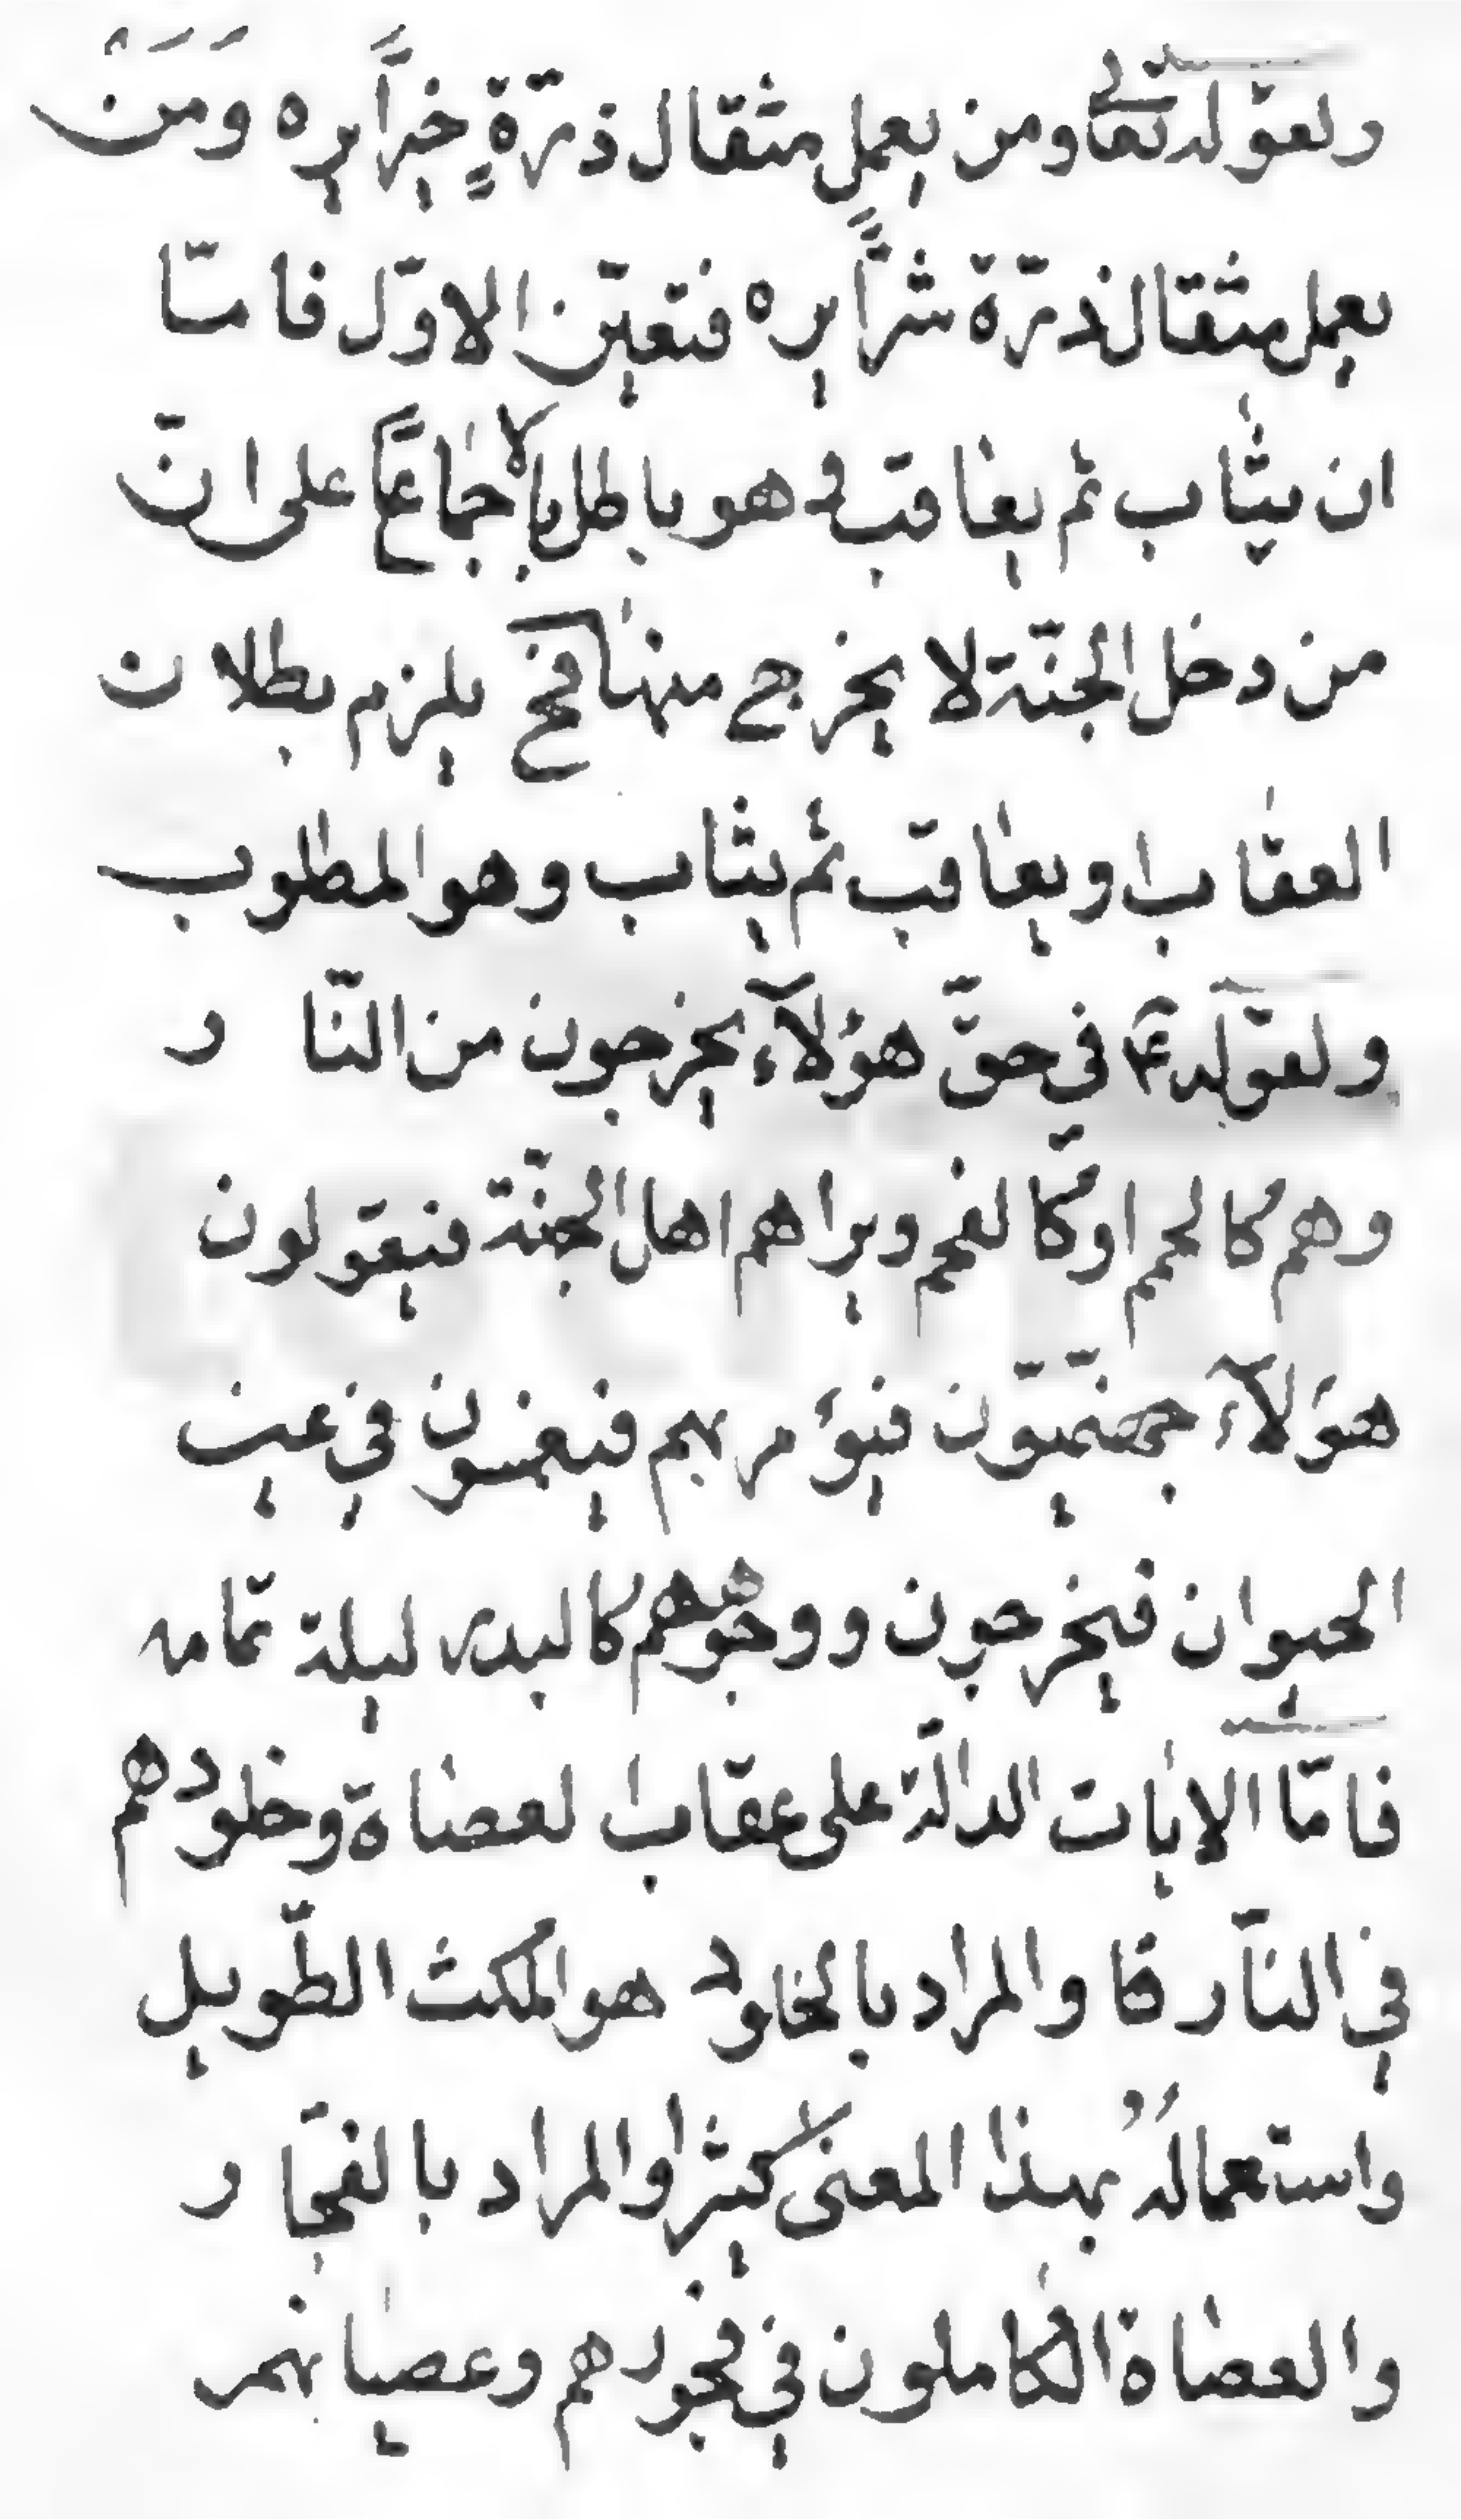 ولقوله تعالى ومن يعمل مثقال ذرّةٍ خيراً يره وَمَنْ
يعمل مثقال ذرّة شرّاً يره فتعيّن الاوّل فامّا
ان يثاب ثم يعاقب وهو باطل بالاجماع على انّ
من دخل الجنّة لا يخرج منها فح يلزم بطلان
العقاب او يعاقب ثم يثاب وهو المطلوب
ولقوله ع في حقّ هؤلآء يخرجون من النّار
وهم كالحمم او كالفحم ويراهم اهل الجنّة فيقولون
هؤلآء جهنّميّون فيؤمر بهم فيغمسون في عين
الحيوان فيخرجون ووجوههم كالبدر ليلة تمامه
فامّا الايات الدالّة على عقاب العصاة وخلودهم
في النّار فا والمراد بالخلود هو المكث الطّويل
واستعمالُهُ بهذا المعنى كثير والمراد بالفجّار
والعصاة الكاملون في فجورهم وعصيانهم